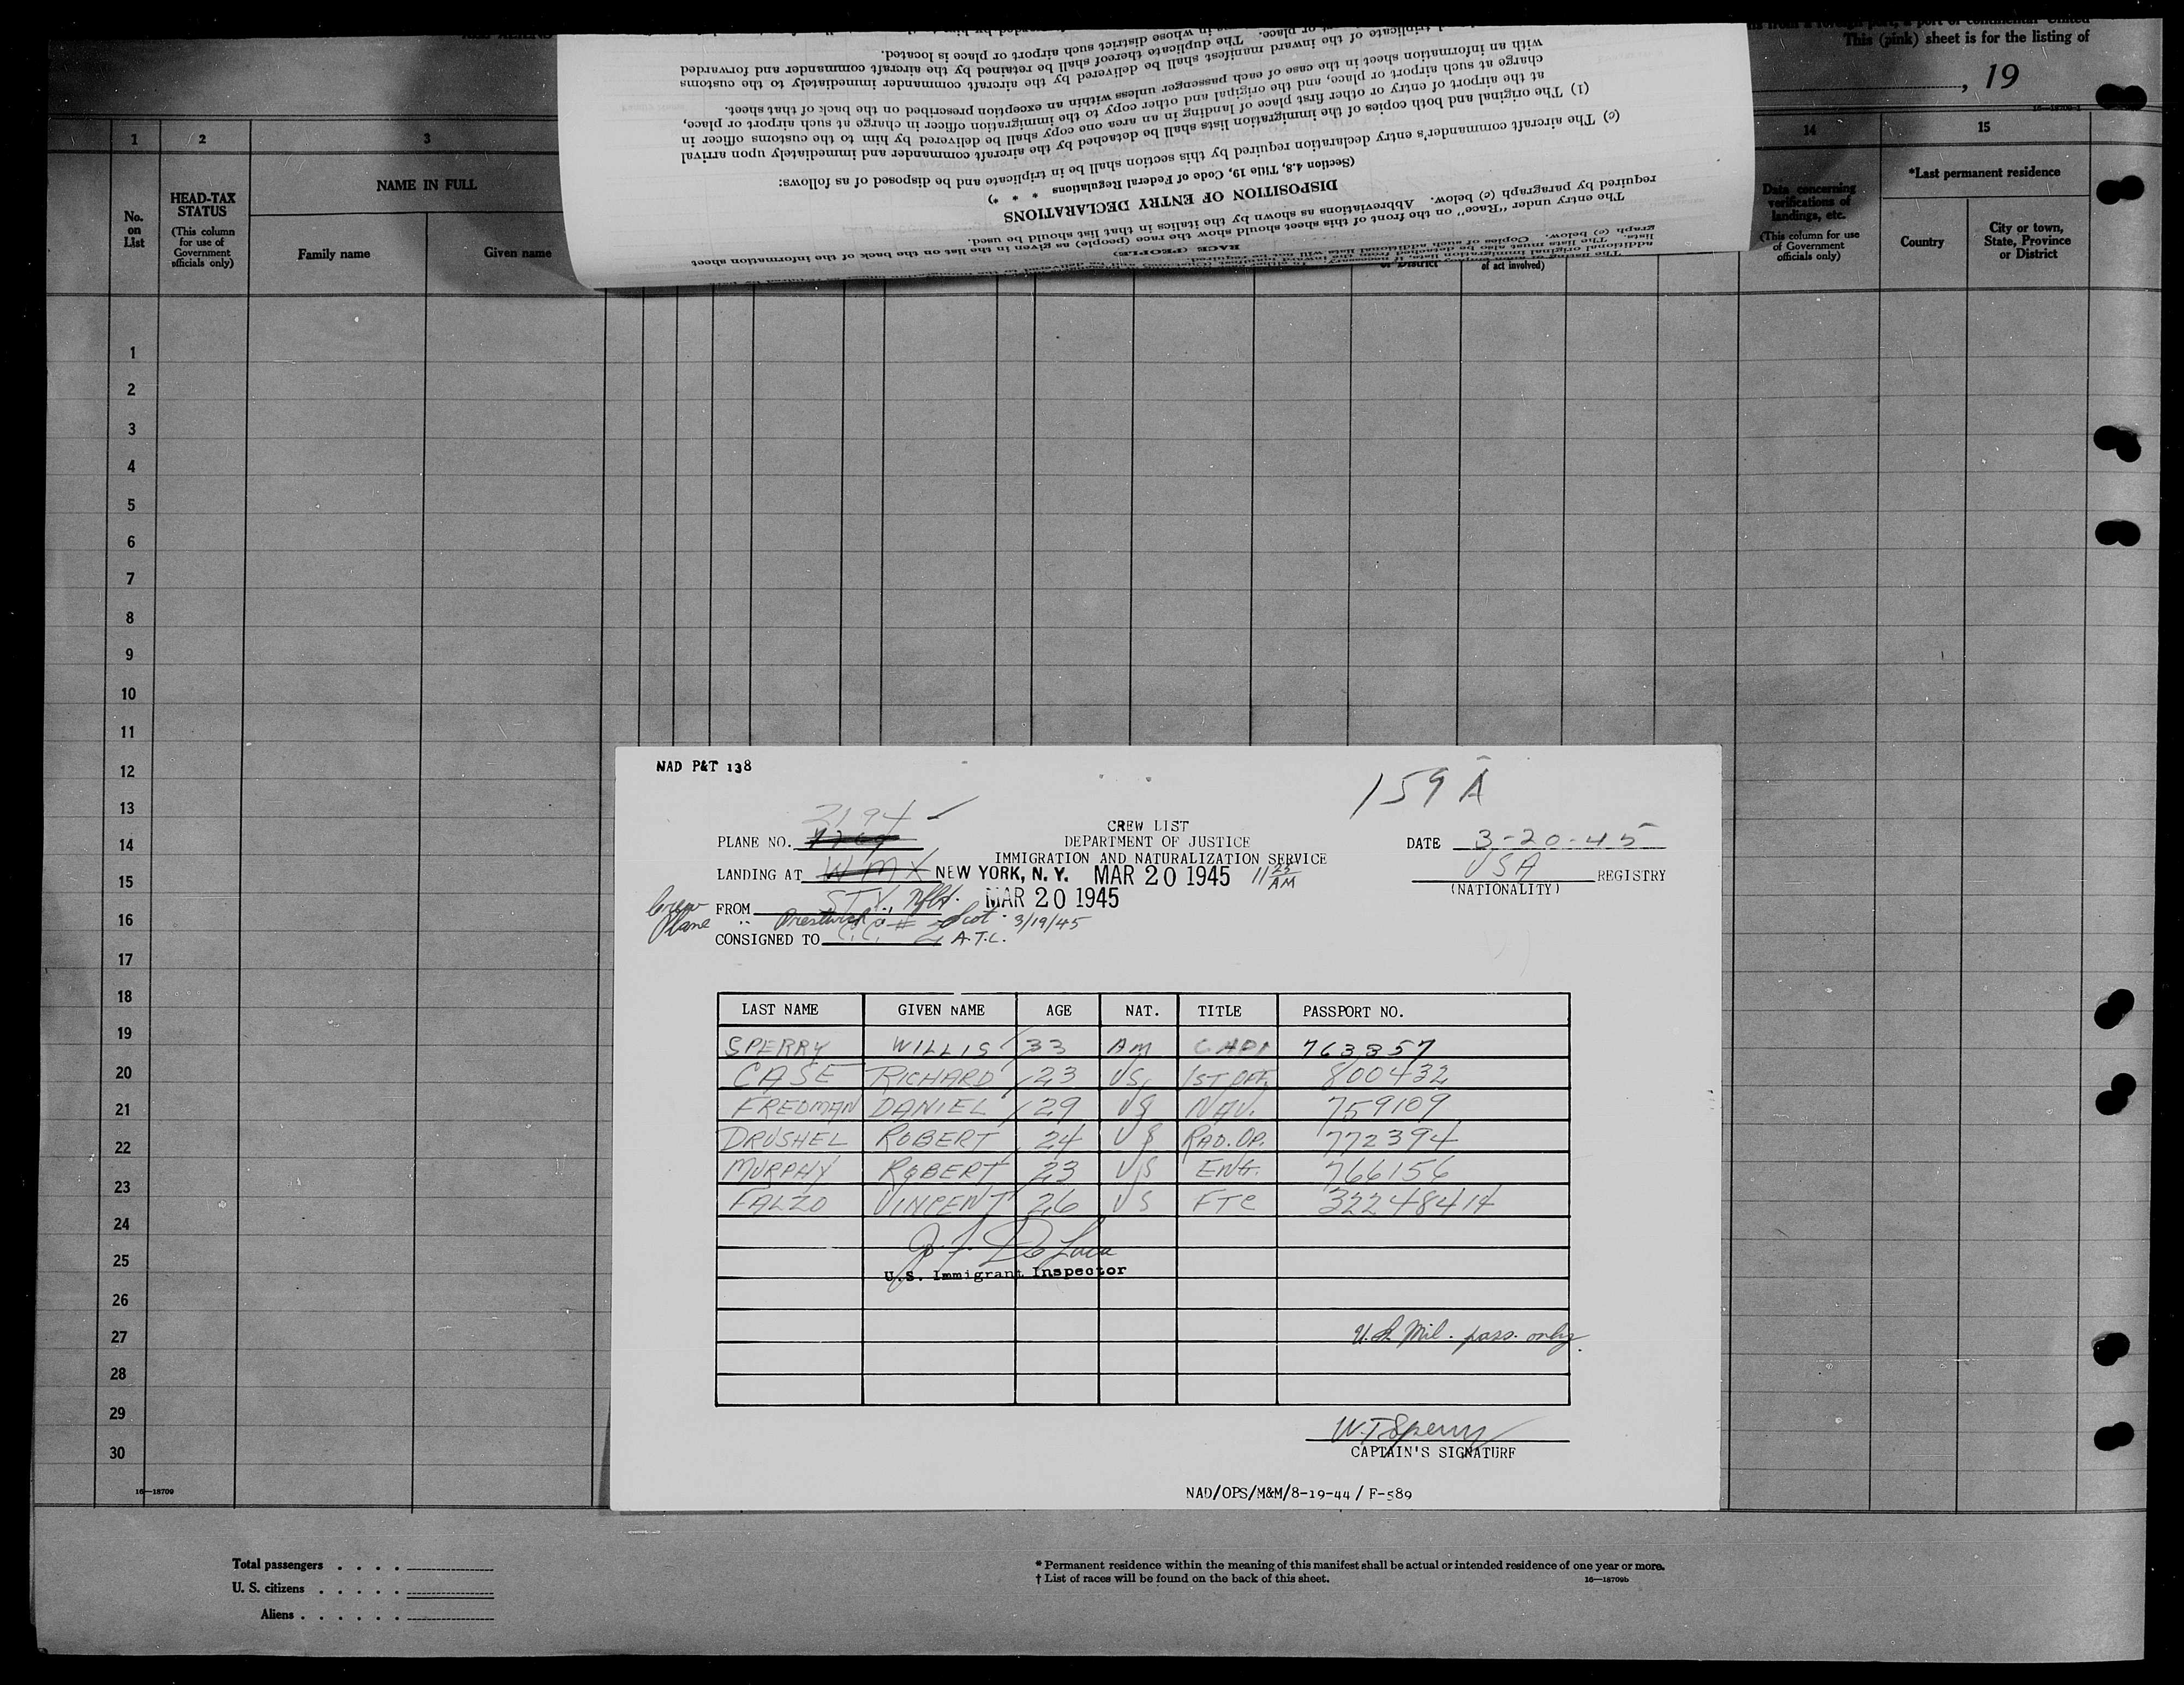 This (pink) sheet is for the listing of
, 19
with an information sheet in the case of each passenger unless within an exception prescribed on the back of that sheet.
DISPOSITION OF ENTRY DECLARATIONS
(Section 4.8, Title 19, Code of Federal Regulations * * *)
(c) The aircraft commander's entry declaration required by this section shall be in triplicate and be disposed of as follows:
(1) The original and both copies of the immigration lists shall be detached by the aircraft commander and immediately upon arrival
at the airport of entry or other first place of landing in an area one copy shall be delivered by him to the customs officer in
charge at such airport or place, and the original and other copy to the immigration officer in charge at such airport or place,
triplicate of the inward manifest shall be delivered by the aircraft commander immediately to the customs
or place. The duplicate thereof shall be retained by the aircraft commander and forwarded
in whose district such airport or place is located.
RACE (PEOPLE)
The entry under "Race" on the front of this sheet should show the race (people) as given in the list on the back of the information sheet
required by paragraph (c) below. Abbreviations as shown by the italics in that list should be used.
1 2 3 14 15
No. on List
HEAD-TAX STATUS
(This column for use of Government officials only)
NAME IN FULL
Family name Given name
or District
of act involved)
Data concerning verifications of landings, etc.
(This column for use of Government officials only)
*Last permanent residence
Country
City or town, State, Province or District
1
2
3
4
5
6
7
8
9
10
11
12
13
14
15
16
17
18
19
20
21
22
23
24
25
26
27
28
29
30
16—18709
NAD P&T 138
159 A
3194
CREW LIST
PLANE NO.
DEPARTMENT OF JUSTICE
DATE 3-20-45
IMMIGRATION AND NATURALIZATION SERVICE
LANDING AT WMX NEW YORK, N. Y. MAR 20 1945 11 25 AM
USA REGISTRY
(NATIONALITY)
Crew FROM STV., Nfld. MAR 20 1945
Plane " Prestwick Scot. 3/19/45
CONSIGNED TO A.T.C.
LAST NAME GIVEN NAME AGE NAT. TITLE PASSPORT NO.
SPERRY WILLIS 33 AM CAPT 763357
CASE RICHARD 23 US 1ST OFF. 800432
FREDMAN DANIEL 29 US NAV. 759109
DRUSHEL ROBERT 24 US RAD. OP. 772394
MURPHY ROBERT 23 US ENG. 766156
FALZO VINCENT 26 US FTC 32248414
J. F. DeLuca
U.S. Immigrant Inspector
U.S. Mil. pass. only.
W.T. Sperry
CAPTAIN'S SIGNATURE
NAD/OPS/M&M/8-19-44 / F-589
Total passengers
U. S. citizens
Aliens
* Permanent residence within the meaning of this manifest shall be actual or intended residence of one year or more.
† List of races will be found on the back of this sheet.
16—18709b